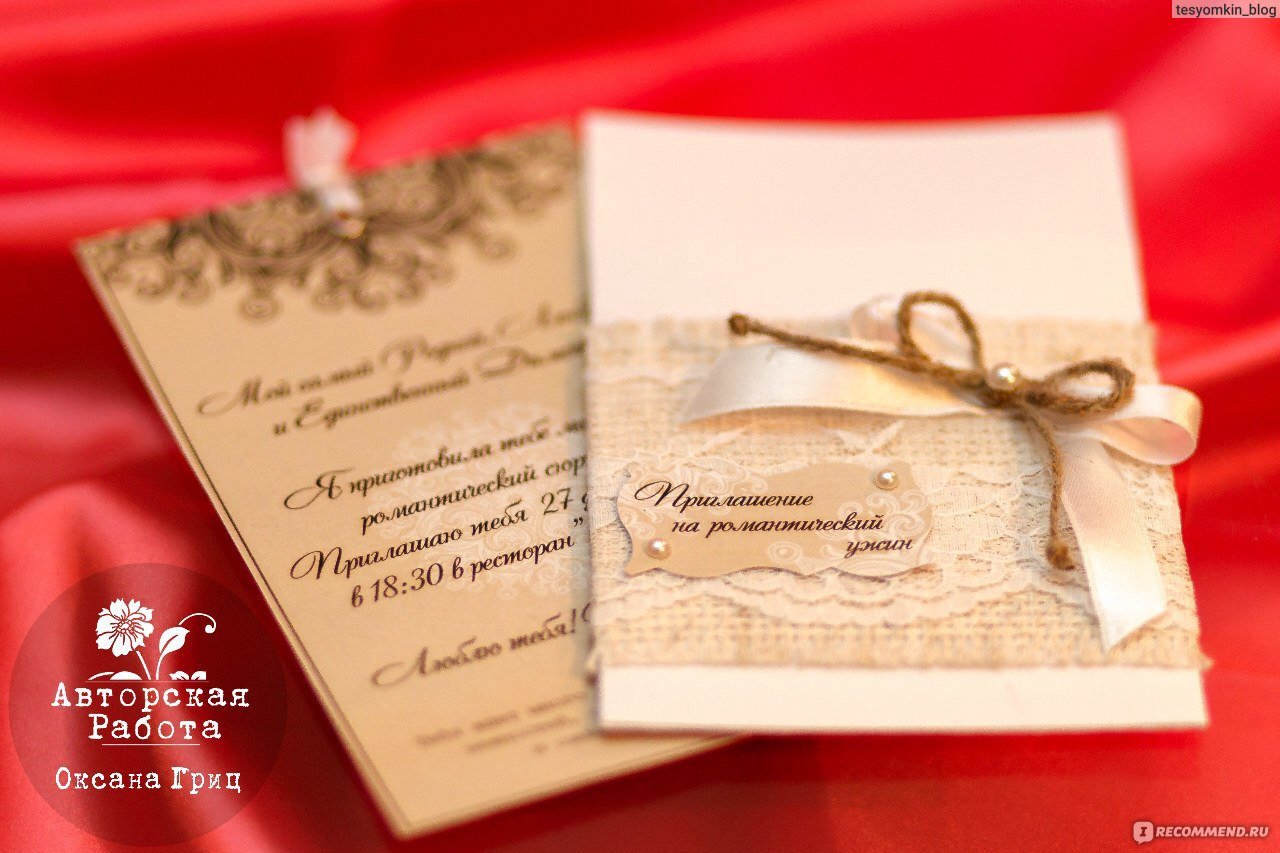 tesyomkin_blog
Мой самый Родной,
и Единственный
Я приготовила тебе
романтический
Приглашаю тебя 27
в 18:30 в ресторан"
Люблю тебя!
Приглашение
на романтический
ужин
Авторская
Работа
Оксана Гриц
IRECOMMEND.RU